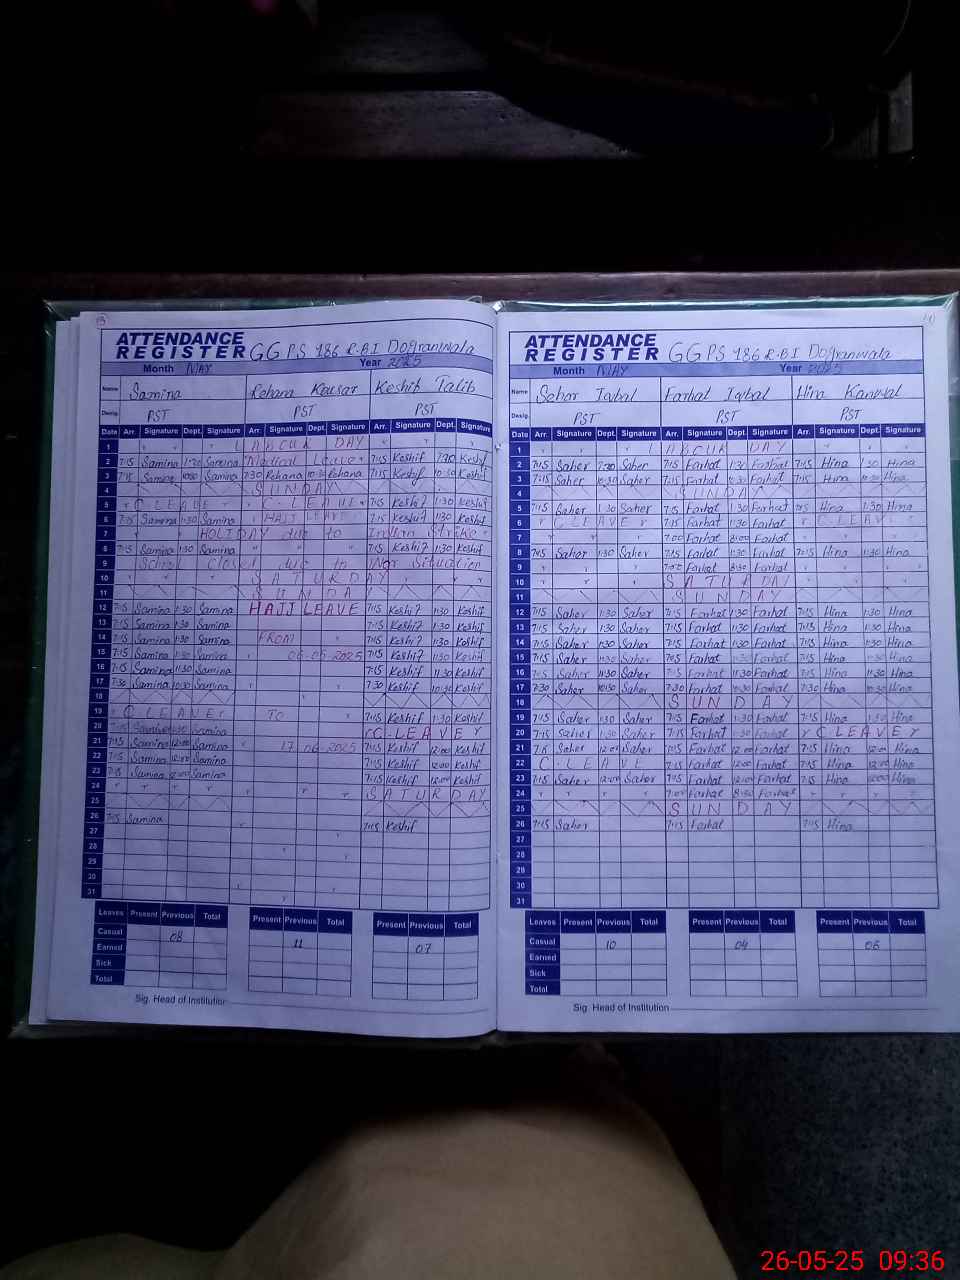 ATTENDANCE
REGISTER GGPS 186 R-BI Dogranwala
Month MAY Year 2025
Name Samina Rehana Kausar Keshif Talib
Desig. PST PST PST
Date Arr. Signature Dept. Signature Arr. Signature Dept. Signature Arr. Signature Dept. Signature
1 DAY
2 7:15 Samina 1:30 Samina Medical Leave 7:15 Keshif 7:30 Keshif
3 7:15 Samina 10:30 Samina 7:30 Rehana 10:30 Rehana 7:15 Keshif 10:30 Keshif
4 SUNDAY
5 C LEAVE C LEAVE 7:15 Keshif 1:30 Keshif
6 7:15 Samina 1:30 Samina HAJJ LEAVE 7:15 Keshif 1:30 Keshif
7 HOLIDAY due to Indian Strike
8 7:15 Samina 1:30 Samina 7:15 Keshif 1:30 Keshif
9 School closed due to War Situation
10 SATURDAY
11 SUNDA
12 7:15 Samina 1:30 Samina HAJJ LEAVE 7:15 Keshif 1:30 Keshif
13 7:15 Samina 1:30 Samina 7:15 Keshif 1:30 Keshif
14 7:15 Samina 1:30 Samina FROM 7:15 Keshif 1:30 Keshif
15 7:15 Samina 1:30 Samina 06-05-2025 7:15 Keshif 1:30 Keshif
16 7:15 Samina 11:30 Samina 7:15 Keshif 11:30 Keshif
17 7:30 Samina 10:30 Samina 7:30 Keshif 10:30 Keshif
18
19 C LEAVE TO 7:15 Keshif 1:30 Keshif
20 Samina 1:30 Samina C-LEAVE
21 7:15 Samina 12:00 Samina 17-06-2025 7:15 Keshif 12:00 Keshif
22 7:15 Samina 12:00 Samina 7:15 Keshif 12:00 Keshif
23 7:15 Samina 12:00 Samina 7:15 Keshif 12:00 Keshif
24 SATURDAY
25
26 7:15 Samina 7:15 Keshif
27
28
29
30
31
Leaves Present Previous Total Present Previous Total Present Previous Total
Casual 08 11 07
Earned
Sick
Total
Sig. Head of Institution
ATTENDANCE
REGISTER GGPS 186 R-BI Dogranwala
Month MAY Year 2025
Name Sehar Iqbal Farhat Iqbal Hina Kanwal
Desig. PST PST PST
Date Arr. Signature Dept. Signature Arr. Signature Dept. Signature Arr. Signature Dept. Signature
1 DAY
2 7:15 Saher 7:30 Saher 7:15 Farhat 1:30 Farhat 7:15 Hina 1:30 Hina
3 7:15 Saher 10:30 Saher 7:15 Farhat 10:30 Farhat 7:15 Hina 10:30 Hina
4 SUNDAY
5 7:15 Saher 1:30 Saher 7:15 Farhat 1:30 Farhat 7:15 Hina 1:30 Hina
6 C LEAVE 7:15 Farhat 1:30 Farhat C-LEAVE
7 7:00 Farhat 8:00 Farhat
8 7:15 Saher 1:30 Saher 7:15 Farhat 1:30 Farhat 7:15 Hina 1:30 Hina
9 7:00 Farhat 8:30 Farhat
10 SATURDAY
11 SUNDAY
12 7:15 Saher 1:30 Saher 7:15 Farhat 1:30 Farhat 7:15 Hina 1:30 Hina
13 7:15 Saher 1:30 Saher 7:15 Farhat 1:30 Farhat 7:15 Hina 1:30 Hina
14 7:15 Saher 1:30 Saher 7:15 Farhat 1:30 Farhat 7:15 Hina 1:30 Hina
15 7:15 Saher 1:30 Saher 7:15 Farhat 1:30 Farhat 7:15 Hina 1:30 Hina
16 7:15 Saher 11:30 Saher 7:15 Farhat 11:30 Farhat 7:15 Hina 11:30 Hina
17 7:30 Saher 10:30 Saher 7:30 Farhat 10:30 Farhat 7:30 Hina 10:30 Hina
18 SUNDAY
19 7:15 Saher 1:30 Saher 7:15 Farhat 1:30 Farhat 7:15 Hina 1:30 Hina
20 7:15 Saher 1:30 Saher 7:15 Farhat 1:30 Farhat C LEAVE
21 7:15 Saher 12:00 Saher 7:15 Farhat 12:00 Farhat 7:15 Hina 12:00 Hina
22 C-LEAVE 7:15 Farhat 12:00 Farhat 7:15 Hina 12:00 Hina
23 7:15 Saher 12:00 Saher 7:15 Farhat 12:00 Farhat 7:15 Hina 12:00 Hina
24 7:00 Farhat 8:30 Farhat
25 SUNDAY
26 7:15 Saher 7:15 Farhat 7:15 Hina
27
28
29
30
31
Leaves Present Previous Total Present Previous Total Present Previous Total
Casual 10 04 06
Earned
Sick
Total
Sig. Head of Institution
26-05-25 09:36